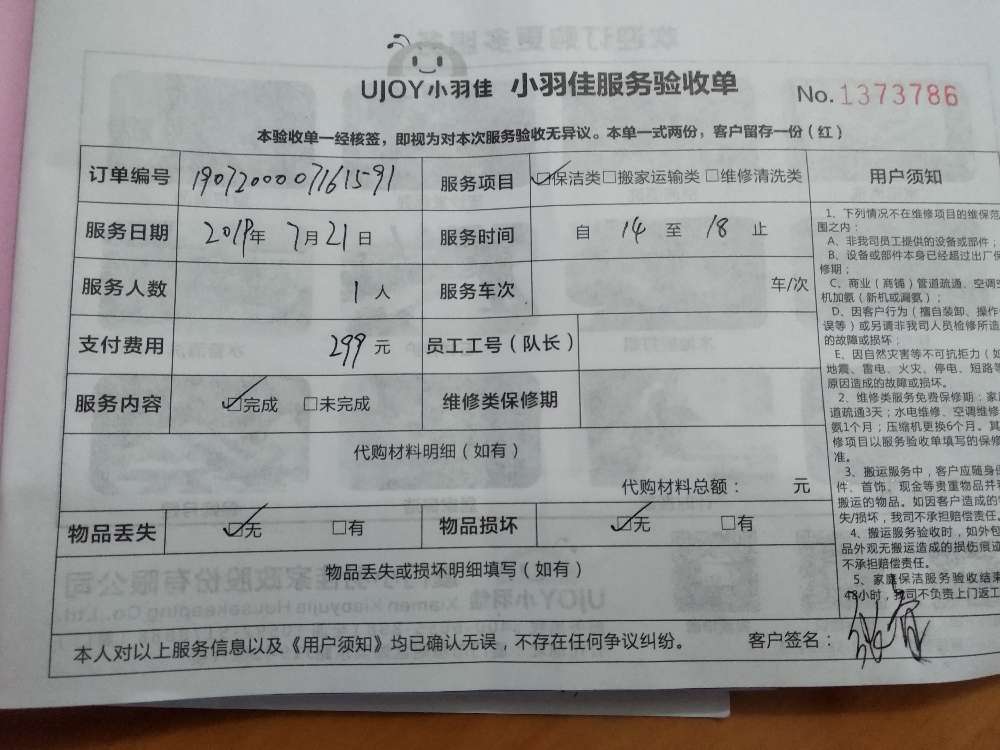 UJOY小羽佳 小羽佳服务验收单 No.1373786
本验收单一经核签，即视为对本次服务验收无异议。本单一式两份，客户留存一份（红）
订单编号 1907200007161591 服务项目 ☑保洁类□搬家运输类□维修清洗类 用户须知
服务日期 2019年 7月21日 服务时间 自 14 至 18 止
服务人数 1人 服务车次 车/次
支付费用 299元 员工工号（队长）
服务内容 ☑完成 □未完成 维修类保修期
代购材料明细（如有）
代购材料总额： 元
物品丢失 ☑无 □有 物品损坏 ☑无 □有
物品丢失或损坏明细填写（如有）
本人对以上服务信息以及《用户须知》均已确认无误，不存在任何争议纠纷。 客户签名：
1、下列情况不在维修项目的维保范
围之内：
A、非我司员工提供的设备或部件；
B、设备或部件本身已经超过出厂保
修期；
C、商业（商铺）管道疏通、空调空
机加氨（新机或漏氨）；
D、因客户行为（擅自装卸、操作
误等）或另请非我司人员检修所造
的故障或损坏；
E、因自然灾害等不可抗拒力（如
地震、雷电、火灾、停电、短路等
原因造成的故障或损坏。
2、维修类服务免费保修期：家庭
道疏通3天；水电维修、空调维修
氨1个月；压缩机更换6个月。其
修项目以服务验收单填写的保修
准。
3、搬运服务中，客户应随身保
件、首饰、现金等贵重物品并
搬运的物品。如因客户造成的
失/损坏，我司不承担赔偿责任。
4、搬运服务验收时，如外包
品外观无搬运造成的损伤痕迹
不承担赔偿责任。
5、家庭保洁服务验收结束
48小时，我司不负责上门返工